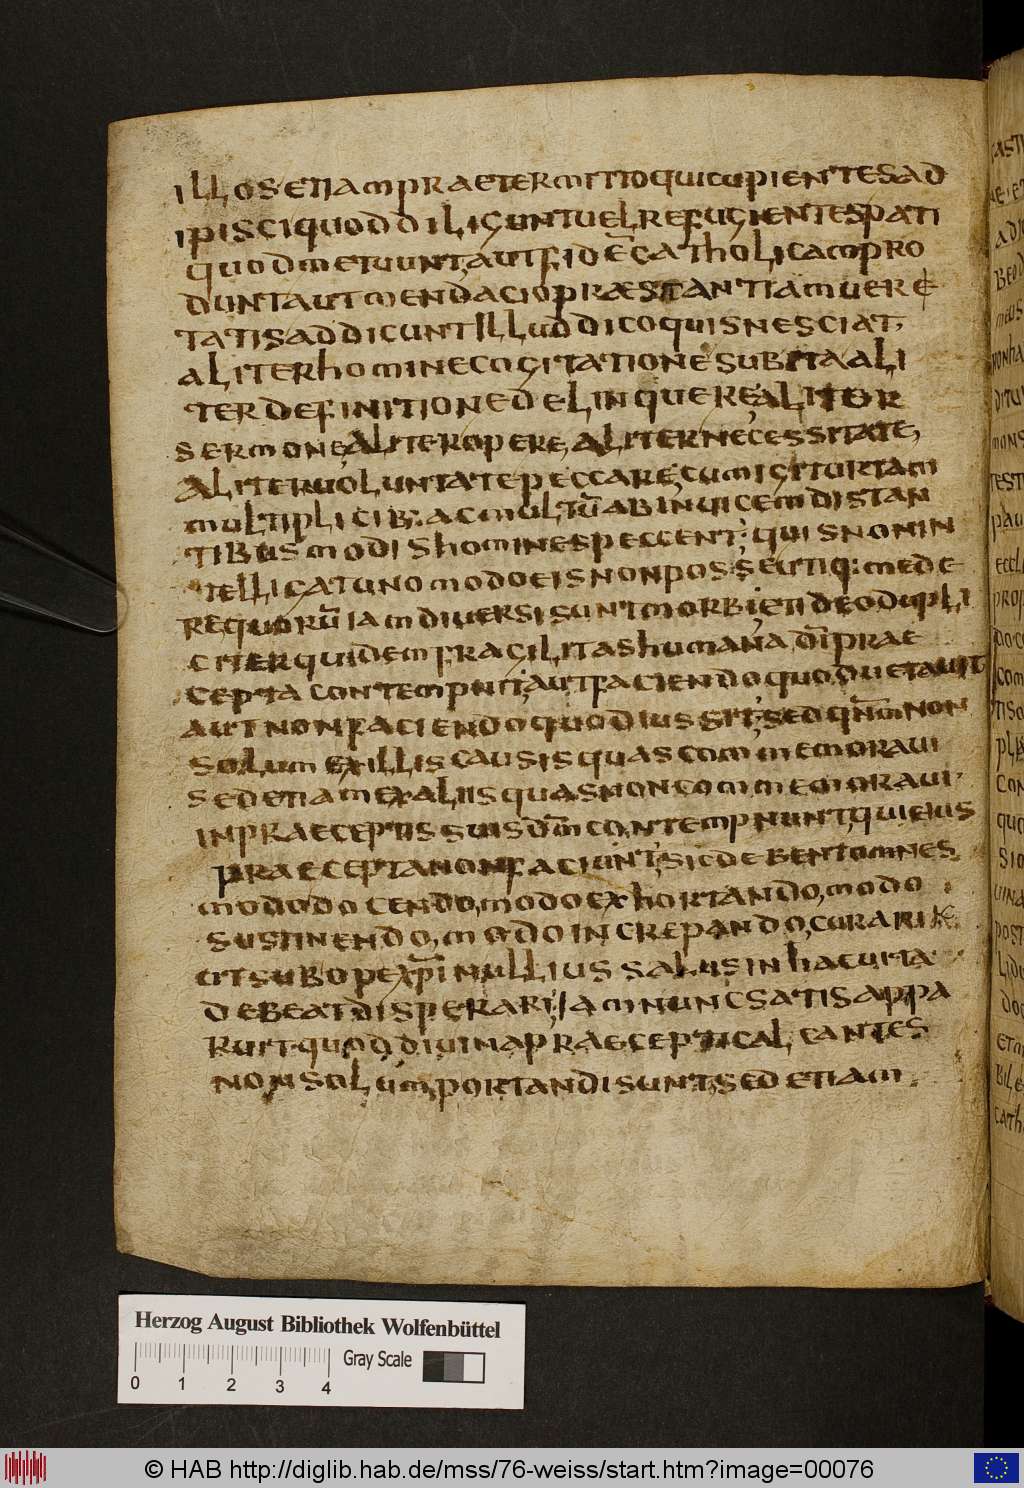 illos etiam praetermitto qui cupientes ad
ipisci quod diligunt uel refugientes pati
quod metuunt aut fidē catholicam pro
dunt aut mendacio praestantiam uere
tatis addicunt Illud dico quis nesciat,
aliter homine cogitatione subita ali
ter definitione delinquere, aliter
sermone, aliter opere, aliter necessitate,
aliter uoluntate peccare, cum igitur tam
multiplicib: ac multū ab inuicem distan
tibus modis homines peccent: quis non in
tellicat uno modo eis non posse utiq: mede
re quorū iam diuersi sunt morbi, et i deo dupli
citer quidem fracilitas humana, dī prae
cepta contempnit, aut faciendo quod uetauit
aut non faciendo quod iussit, sed qnm non
solum ex illis causis quas commemoraui
sed etiam ex aliis quas non commemoraui
in praeceptis suis dm contempnunt, qui eius
praecepta non faciunt, sic debent omnes
modo docendo, modo exhortando, modo
sustinendo, modo increpando, curari
ut sub ope xpi nullius salus in hac uita
debeat disperari, iam nunc satis appa
Ruit quod diuina praecepti calcantes
non solum portandi sunt, sed etiam
Herzog August Bibliothek Wolfenbüttel
Gray Scale
0 1 2 3 4
© HAB http://diglib.hab.de/mss/76-weiss/start.htm?image=00076